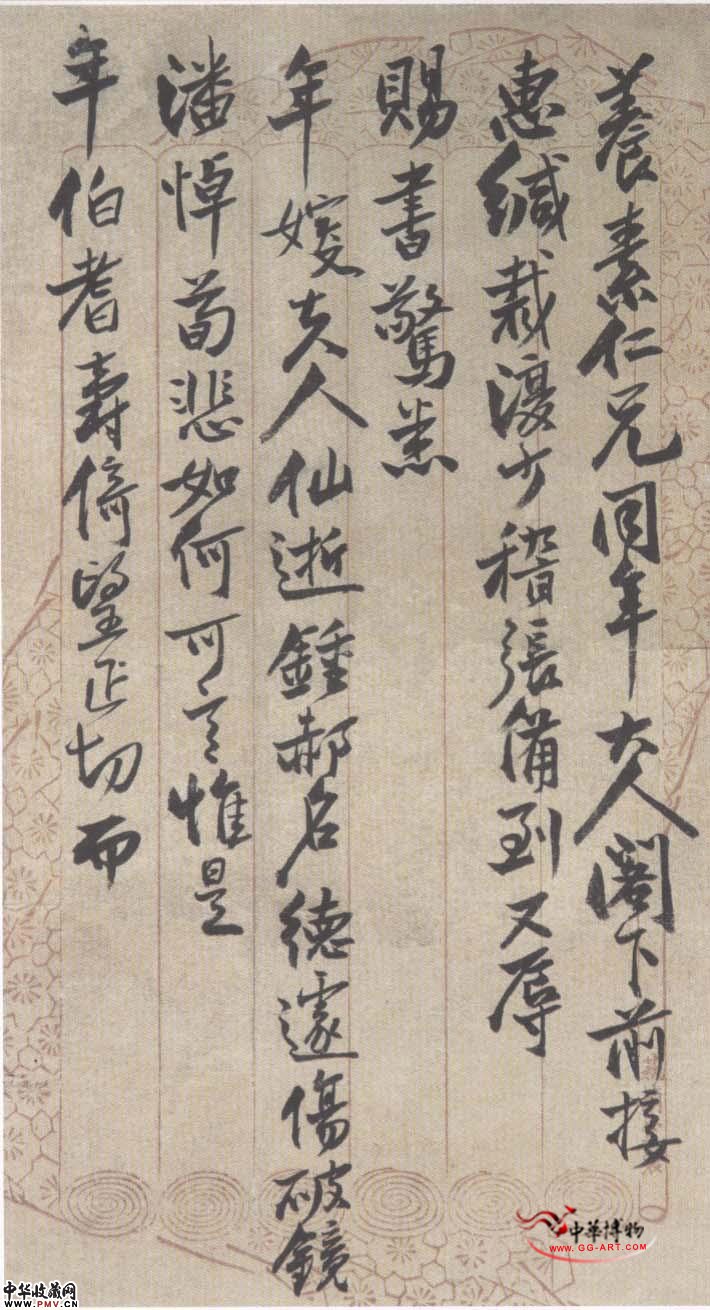 養素仁兄同年大人閣下前接
惠緘裁覆少稽張備到又辱
賜書驚悉
年嫂夫人仙逝鍾郝名德遽傷破鏡
潘悼荀悲如何可言惟是
年伯耆壽倚望正切而
中華博物
WWW.GG-ART.COM
中华收藏网
WWW.PMV.CN